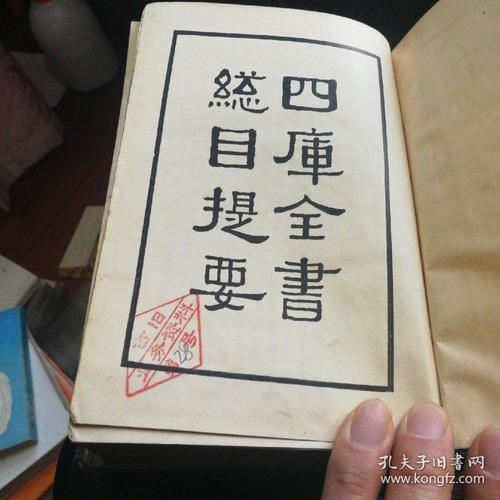 四庫全書
総目提要
孔夫子旧书网
www.kongfz.com